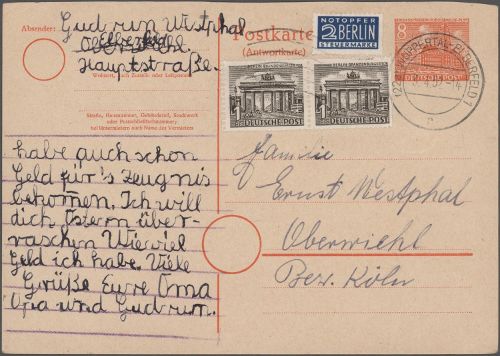 Absender: Gudrun Westphal
Hauptstraße.
Wohnort, auch Zustell- oder Leitpostamt
Straße, Hausnummer, Gebäudeteil, Stockwerk
oder Postschließfachnummer;
bei Untermietern auch Name des Vermieters
Postkarte
(Antwortkarte)
NOTOPFER
2 BERLIN
STEUERMARKE
8
1 DEUTSCHE POST
1 DEUTSCHE POST
habe auch schon
Geld für's Zeugnis
bekommen. Ich will
dich Ostern über-
raschen Wieviel
Geld ich habe. Viele
Grüße Eure Oma
Opa und Gudrun.
Familie
Ernst Westphal
Oberwiehl
Bez. Köln